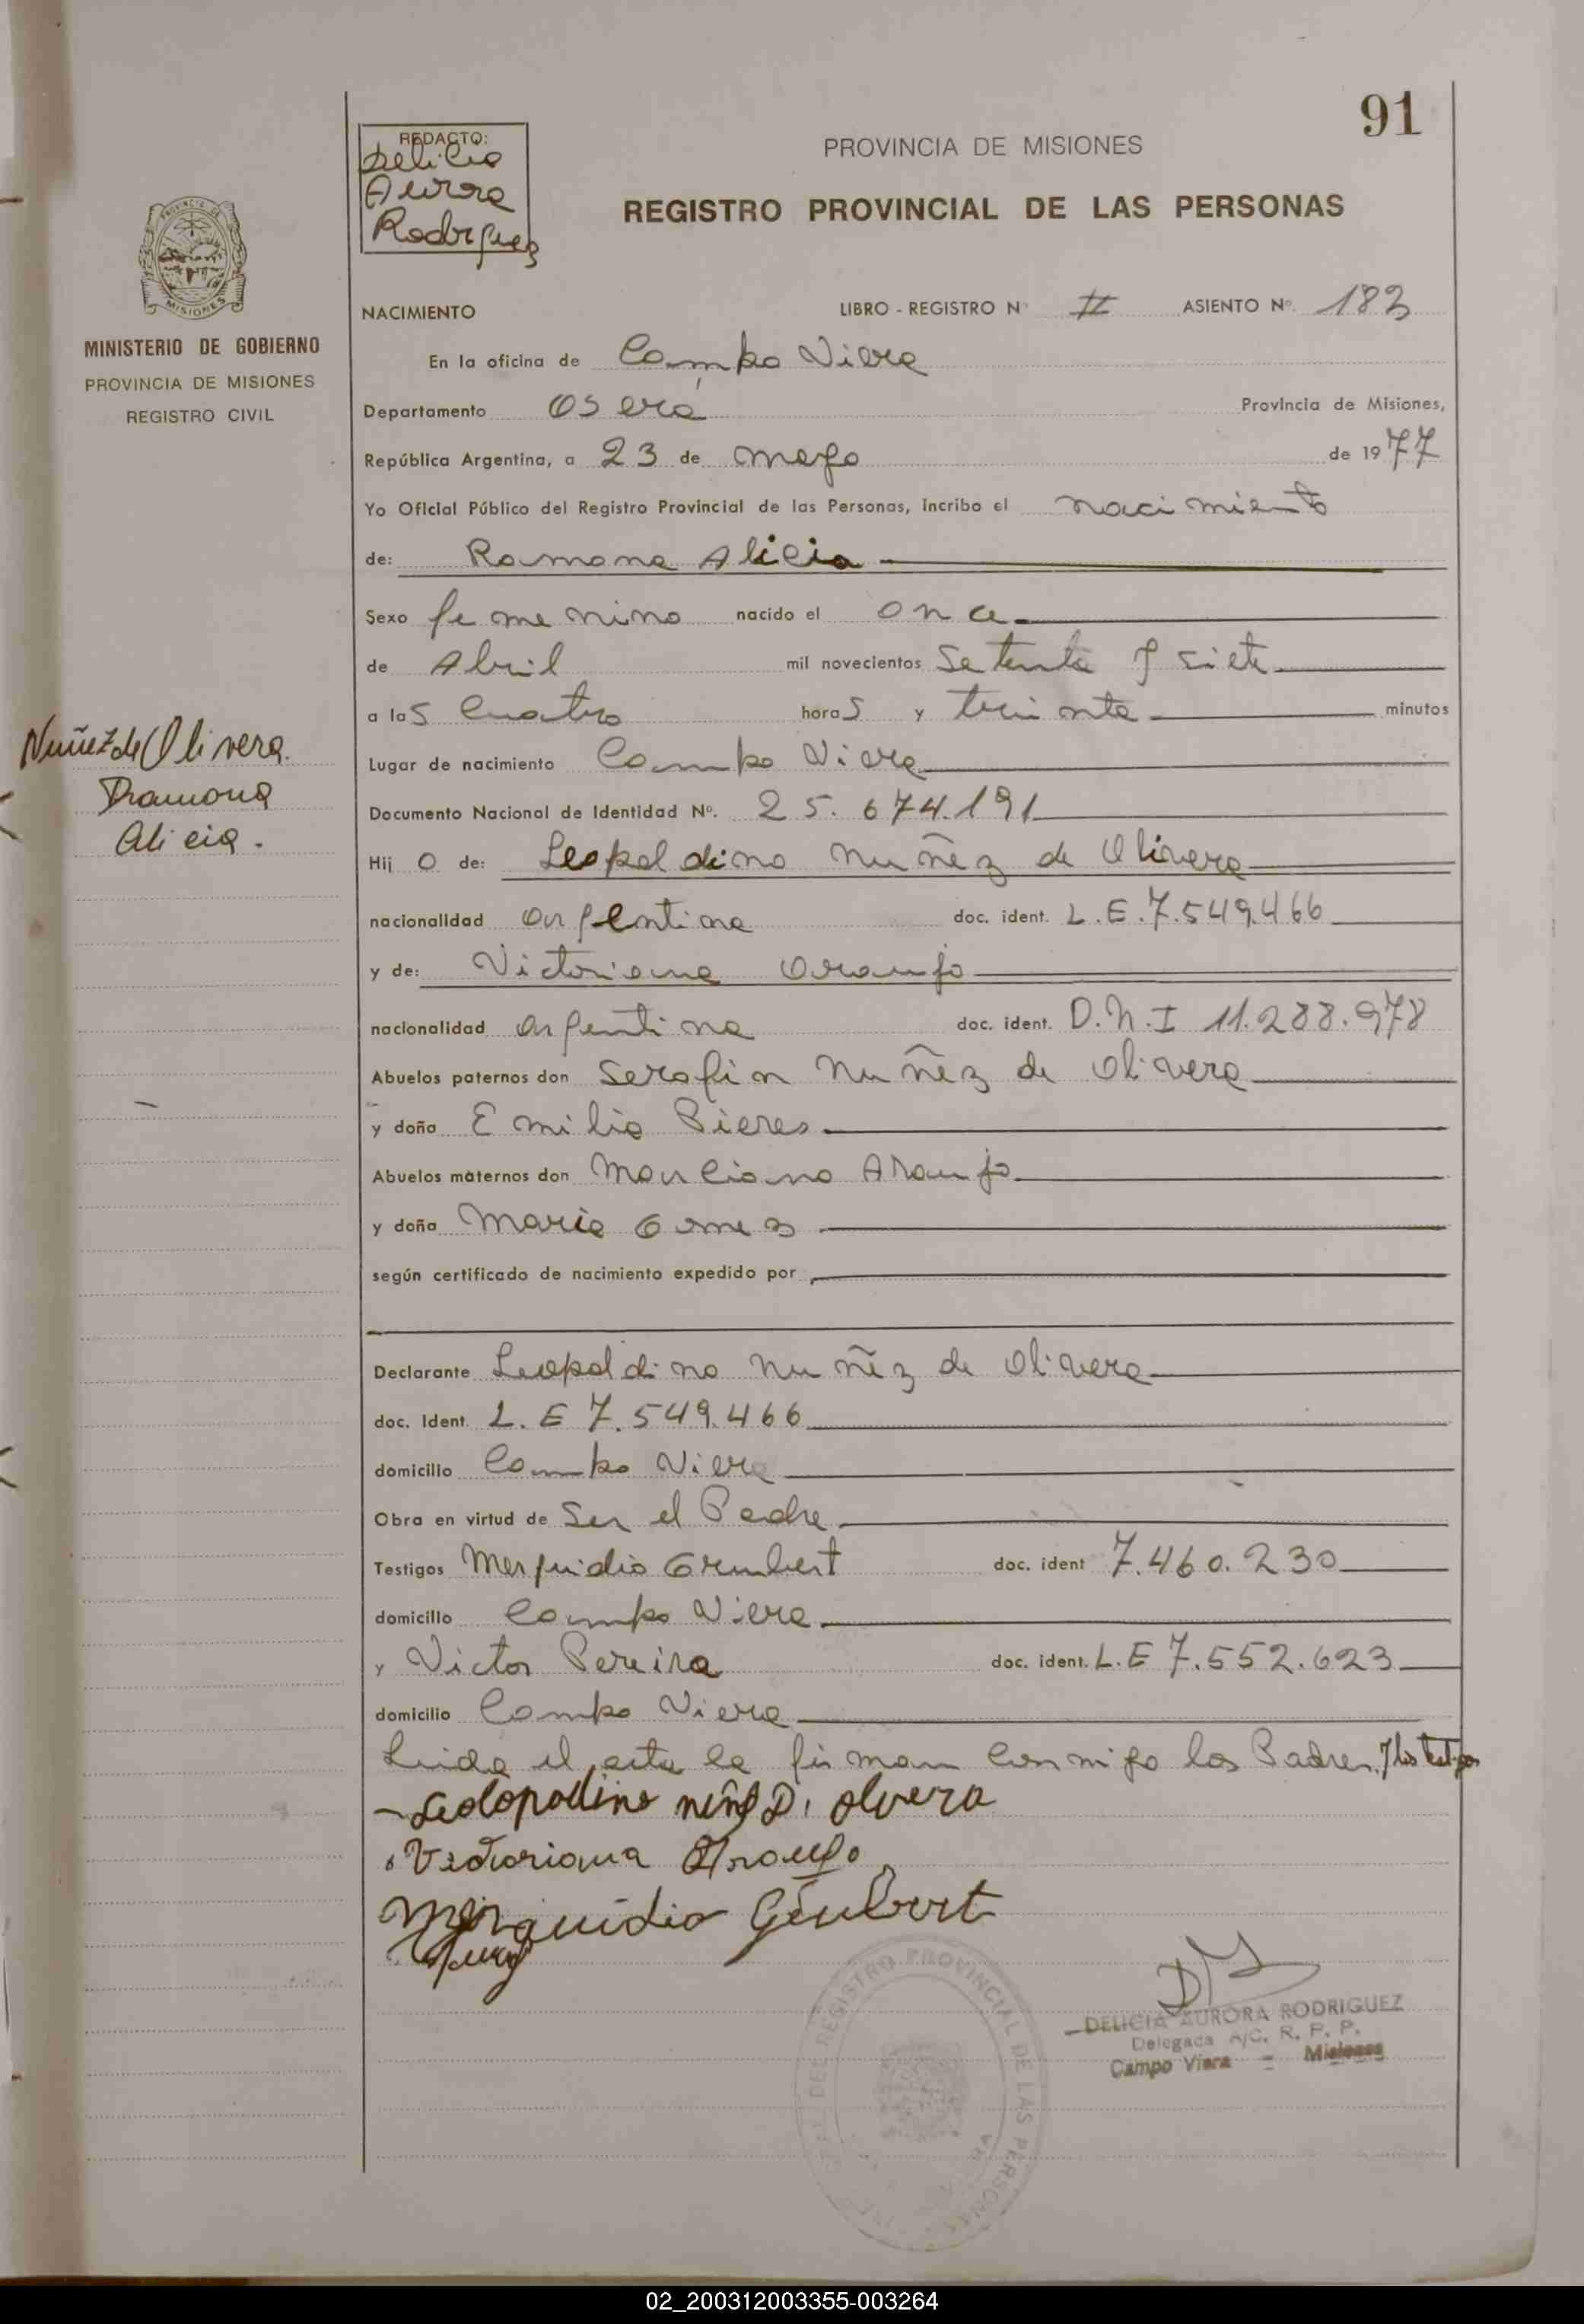 91
REDACTO:
Delicia
Aurora
Rodriguez
PROVINCIA DE MISIONES
REGISTRO PROVINCIAL DE LAS PERSONAS
PROVINCIA DE
MISIONES
MINISTERIO DE GOBIERNO
PROVINCIA DE MISIONES
REGISTRO CIVIL
NACIMIENTO LIBRO - REGISTRO Nº II ASIENTO Nº. 183
En la oficina de Campo Viera
Departamento Oberá Provincia de Misiones,
República Argentina, a 23 de mayo de 1977
Yo Oficial Público del Registro Provincial de las Personas, incribo el nacimiento
de: Ramona Alicia
Sexo femenino nacido el once
de Abril mil novecientos setenta y siete
a las cuatro horas y treinta minutos
Lugar de nacimiento Campo Viera
Documento Nacional de Identidad Nº. 25.674.191
Nuñez de Olivera.
Ramona
Alicia.
Hijo de: Leopoldino Nuñez de Olivera
nacionalidad argentina doc. ident. L.E. 7.549.466
y de: Victoriana Araujo
nacionalidad argentina doc. ident. D.N.I 11.288.978
Abuelos paternos don Serafin Nuñez de Olivera
y doña Emilia Pieres
Abuelos maternos don Marciano Araujo
y doña Maria Gomez
según certificado de nacimiento expedido por
Declarante Leopoldino Nuñez de Olivera
doc. Ident L.E 7.549.466
domicilio Campo Viera
Obra en virtud de Ser el Padre
Testigos Merquidio Grumbert doc. ident 7.460.230
domicilio Campo Viera
y Victor Pereira doc. ident. L.E 7.552.623
domicilio Campo Viera
Leida el acta la firman conmigo los Padres y los testigos
Leolopodino D. olvera
Victoriana Araujo
Merquidio Geulbert
DEL REGISTRO PROVINCIAL DE LAS PERSONAS
DELICIA AURORA RODRIGUEZ
Delegada A/C. R. P. P.
Campo Viera = Misiones
02_200312003355-003264